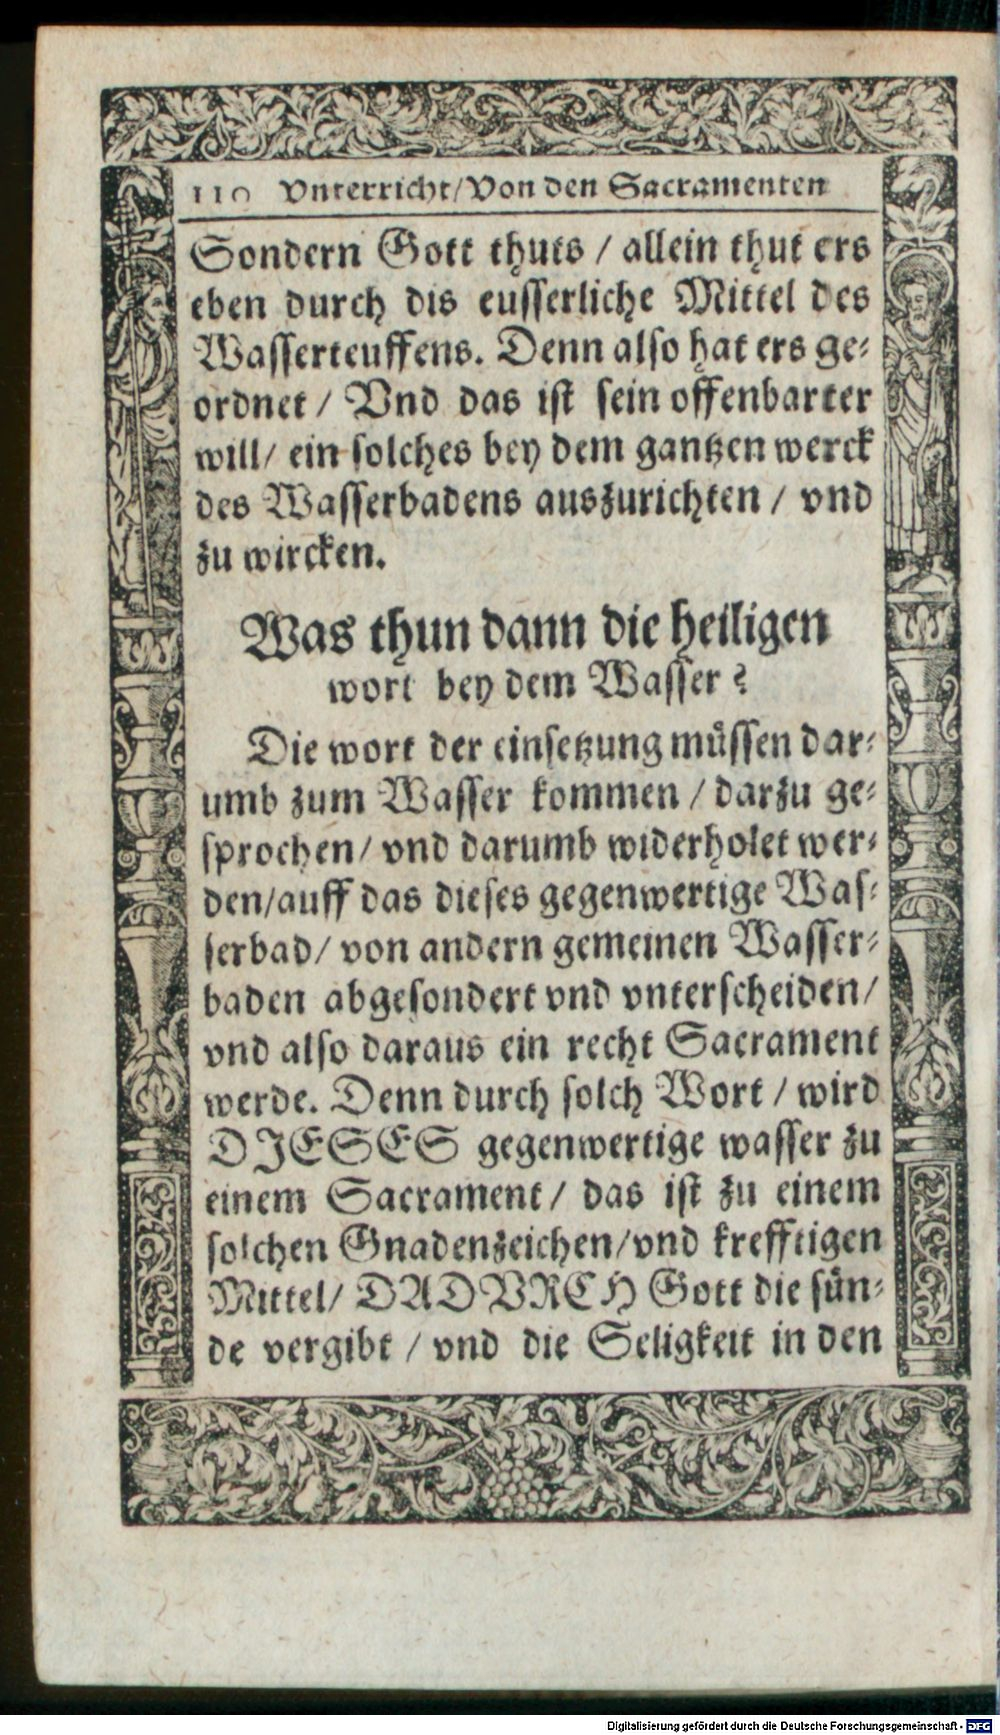 110 Vnterricht/Von den Sacramenten
Sondern Gott thuts / allein thut ers
eben durch dis eusserliche Mittel des
Wasserteuffens. Denn also hat ers ge-
ordnet / Vnd das ist sein offenbarter
will/ ein solches bey dem gantzen werck
des Wasserbadens auszurichten / vnd
zu wircken.
Was thun dann die heiligen
wort bey dem Wasser?
Die wort der einsetzung müssen dar-
umb zum Wasser kommen / darzu ge-
sprochen/ vnd darumb widerholet wer-
den/auff das dieses gegenwertige Was-
serbad/ von andern gemeinen Wasser-
baden abgesondert vnd vnterscheiden/
vnd also daraus ein recht Sacrament
werde. Denn durch solch Wort / wird
DJESES gegenwertige wasser zu
einem Sacrament/ das ist zu einem
solchen Gnadenzeichen/vnd krefftigen
Mittel/ DADVRCH Gott die sün-
de vergibt / vnd die Seligkeit in den
Digitalisierung gefördert durch die Deutsche Forschungsgemeinschaft - DFG